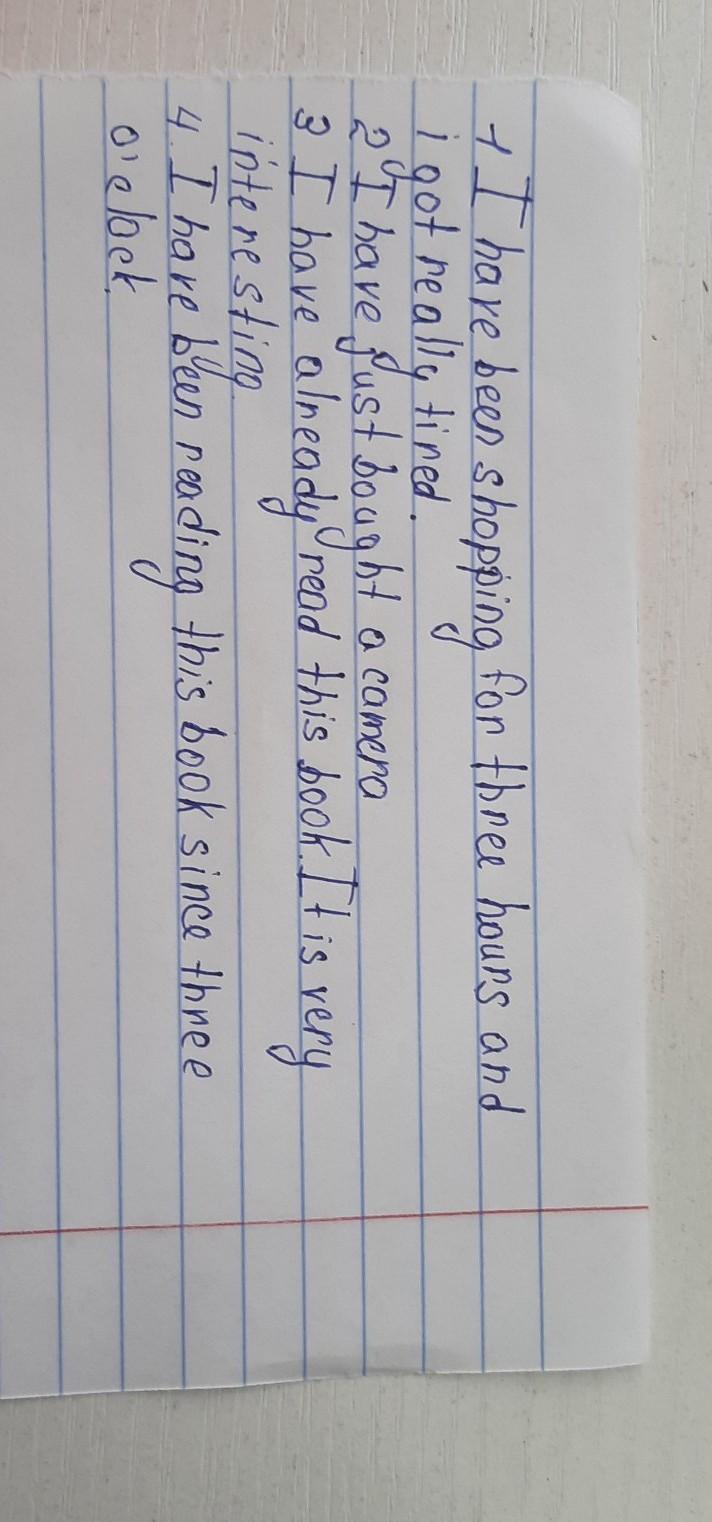 1 I have been shopping for three hours and
i got really tired.
2 I have just bought a camera
3 I have already read this book. It is very
interesting
4. I have been reading this book since three
o'clock.